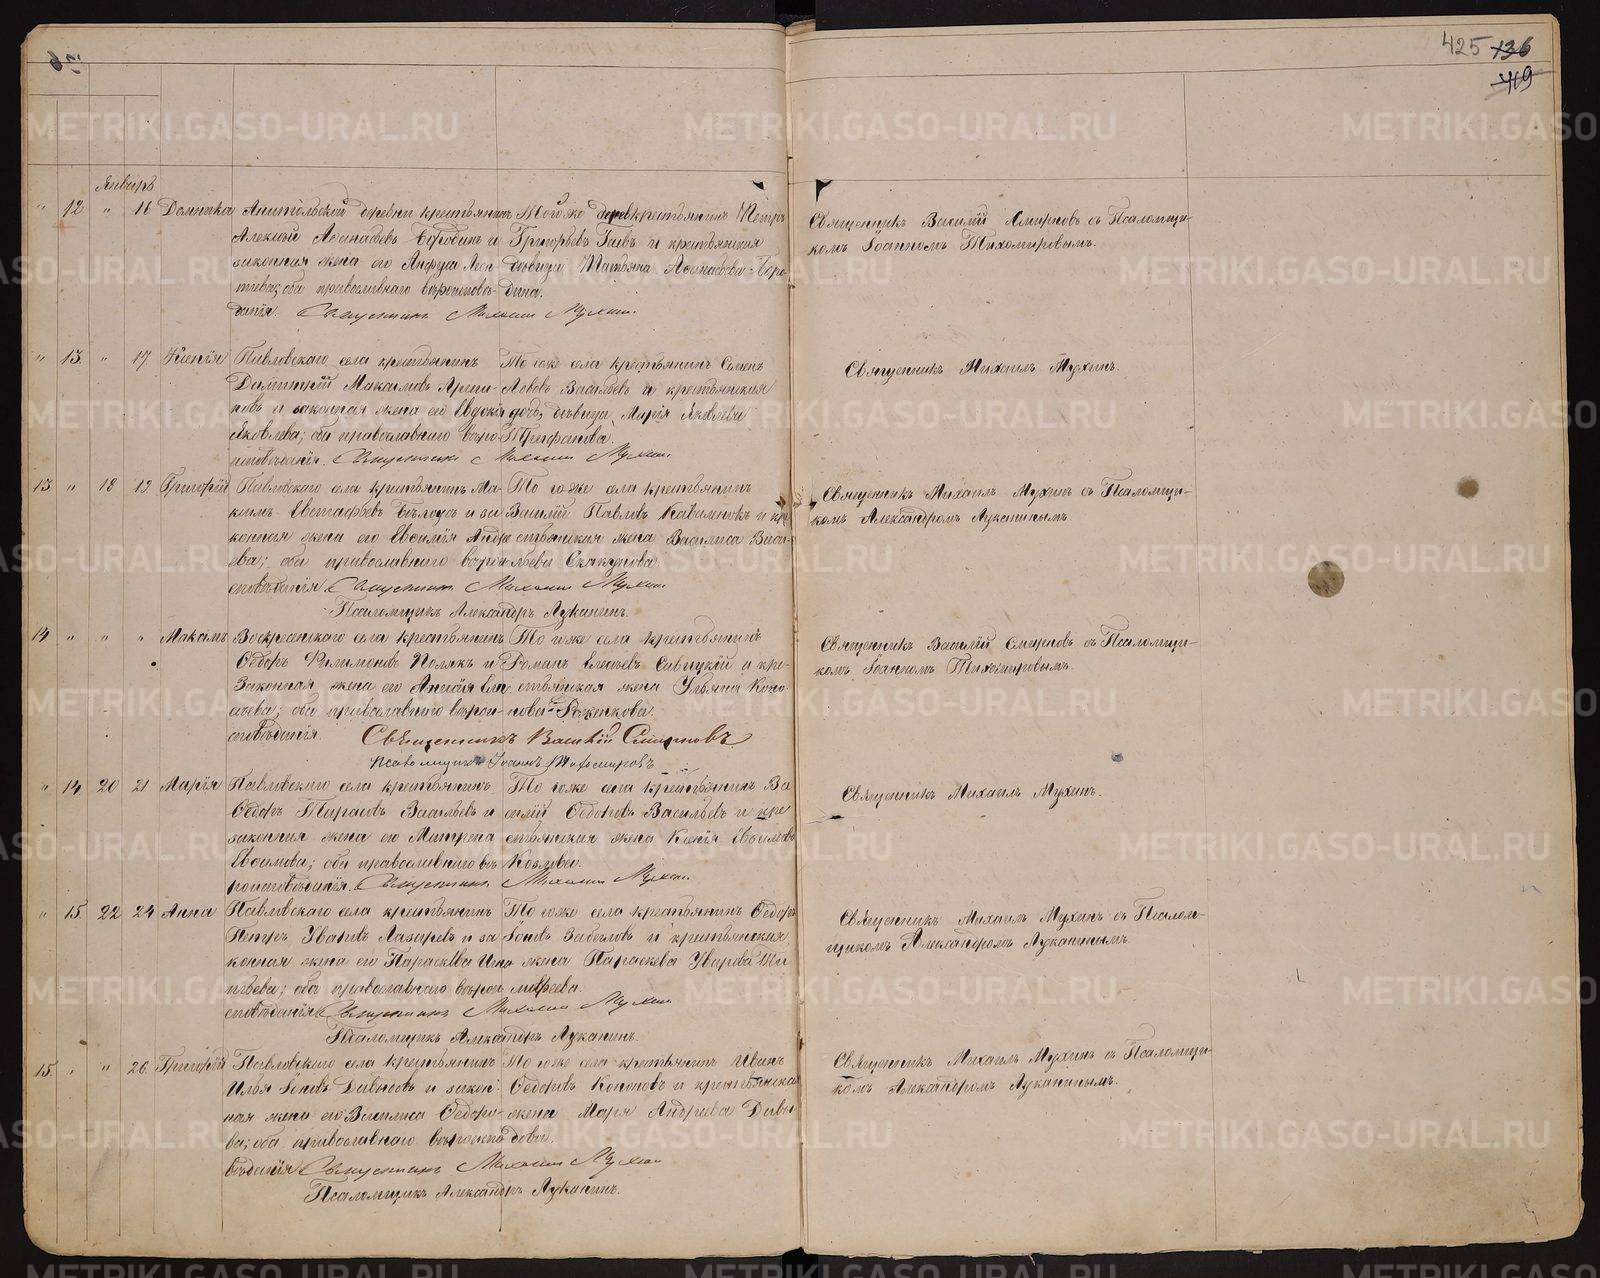 425 136
419
Январь
" 12 " 16 Домника
деревни крестьянинъ
Алексѣй
законная жена его Анфуса
оба православнаго вѣроисповѣ-
данія. Священникъ Михаилъ Мухинъ.
Той же крестьянинъ Петръ
Григорьевъ и крестьянская
дѣвица Татьяна
дина.
Священникъ Василій Смирновъ съ Псаломщи-
комъ Іоанномъ Тихомировымъ.
" 13 " 17 Ксенія
Павловскаго села крестьянинъ
Димитрій Максимовъ
новъ и законная жена его Евдокія
Яковлева; оба православнаго вѣро-
исповѣданія. Священникъ Михаилъ Мухинъ.
Того же села крестьянинъ Семенъ
Васильевъ и крестьянская
дочь, дѣвица, Марія Яковлева
Трифонова.
Священникъ Михаилъ Мухинъ.
13 " 18 19 Григорій
Павловскаго села крестьянинъ Ма-
ксимъ Евстафьевъ и за-
конная жена его
ва; оба православнаго вѣрои-
сповѣданія. Священникъ Михаилъ Мухинъ.
Псаломщикъ Александръ Луканинъ.
Того же села крестьянинъ
Василій Павловъ Коваленковъ и кре
стьянская жена Василиса Васи-
льева Скакунова.
Священникъ Михаилъ Мухинъ съ Псаломщи-
комъ Александромъ Луканинымъ.
14 " " " Максимъ
Воскресенскаго села крестьянинъ
Ѳедоръ Филимоновъ Полякъ и
Законная жена его
оба православнаго вѣрои-
сповѣданія. Священникъ Василій Смирновъ
Псаломщикъ Іоаннъ Тихомировъ
Того же села крестьянинъ
Романъ Савицкій и кре-
стьянская жена Ульяна Коно-
нова
Священникъ Василій Смирновъ съ Псаломщи-
комъ Іоанномъ Тихомировымъ.
" 14 20 21 Марія
Павловскаго села крестьянинъ
Ѳедоръ Васильевъ и
законная жена его Матрена
оба православнаго вѣ-
роисповѣданія. Священникъ Михаилъ Мухинъ.
Того же села крестьянинъ Ва
силій Ѳедоровъ Васильевъ и кре
стьянская жена Ксенія
Козлова.
Священникъ Михаилъ Мухинъ.
" 15 22 24 Анна
Павловскаго села крестьянинъ
Петръ Уваровъ Лазаревъ и за
конная жена его Параскева Игна
тьева; оба православнаго вѣрои
сповѣданія Священникъ Михаилъ Мухинъ
Псаломщикъ Александръ Луканинъ.
Того же села крестьянинъ Ѳедоръ
и крестьянская
жена Параскева Уварова Ти
мофеева.
Священникъ Михаилъ Мухинъ съ Псалом-
щикомъ Александромъ Луканинымъ.
15 " " 26 Григорій
Павловскаго села крестьянинъ
Илья Іоновъ Давыдовъ и закон-
ная жена его Василиса Ѳедоро-
ва; оба православнаго вѣроиспо
вѣданія Священникъ Михаилъ Мухинъ
Псаломщикъ Александръ Луканинъ.
Того же села крестьянинъ Иванъ
Ѳедоровъ Кононовъ и крестьянская
жена Марія Андреева Давы-
дова.
Священникъ Михаилъ Мухинъ съ Псаломщи-
комъ Александромъ Луканинымъ.
METRIKI.GASO-URAL.RU